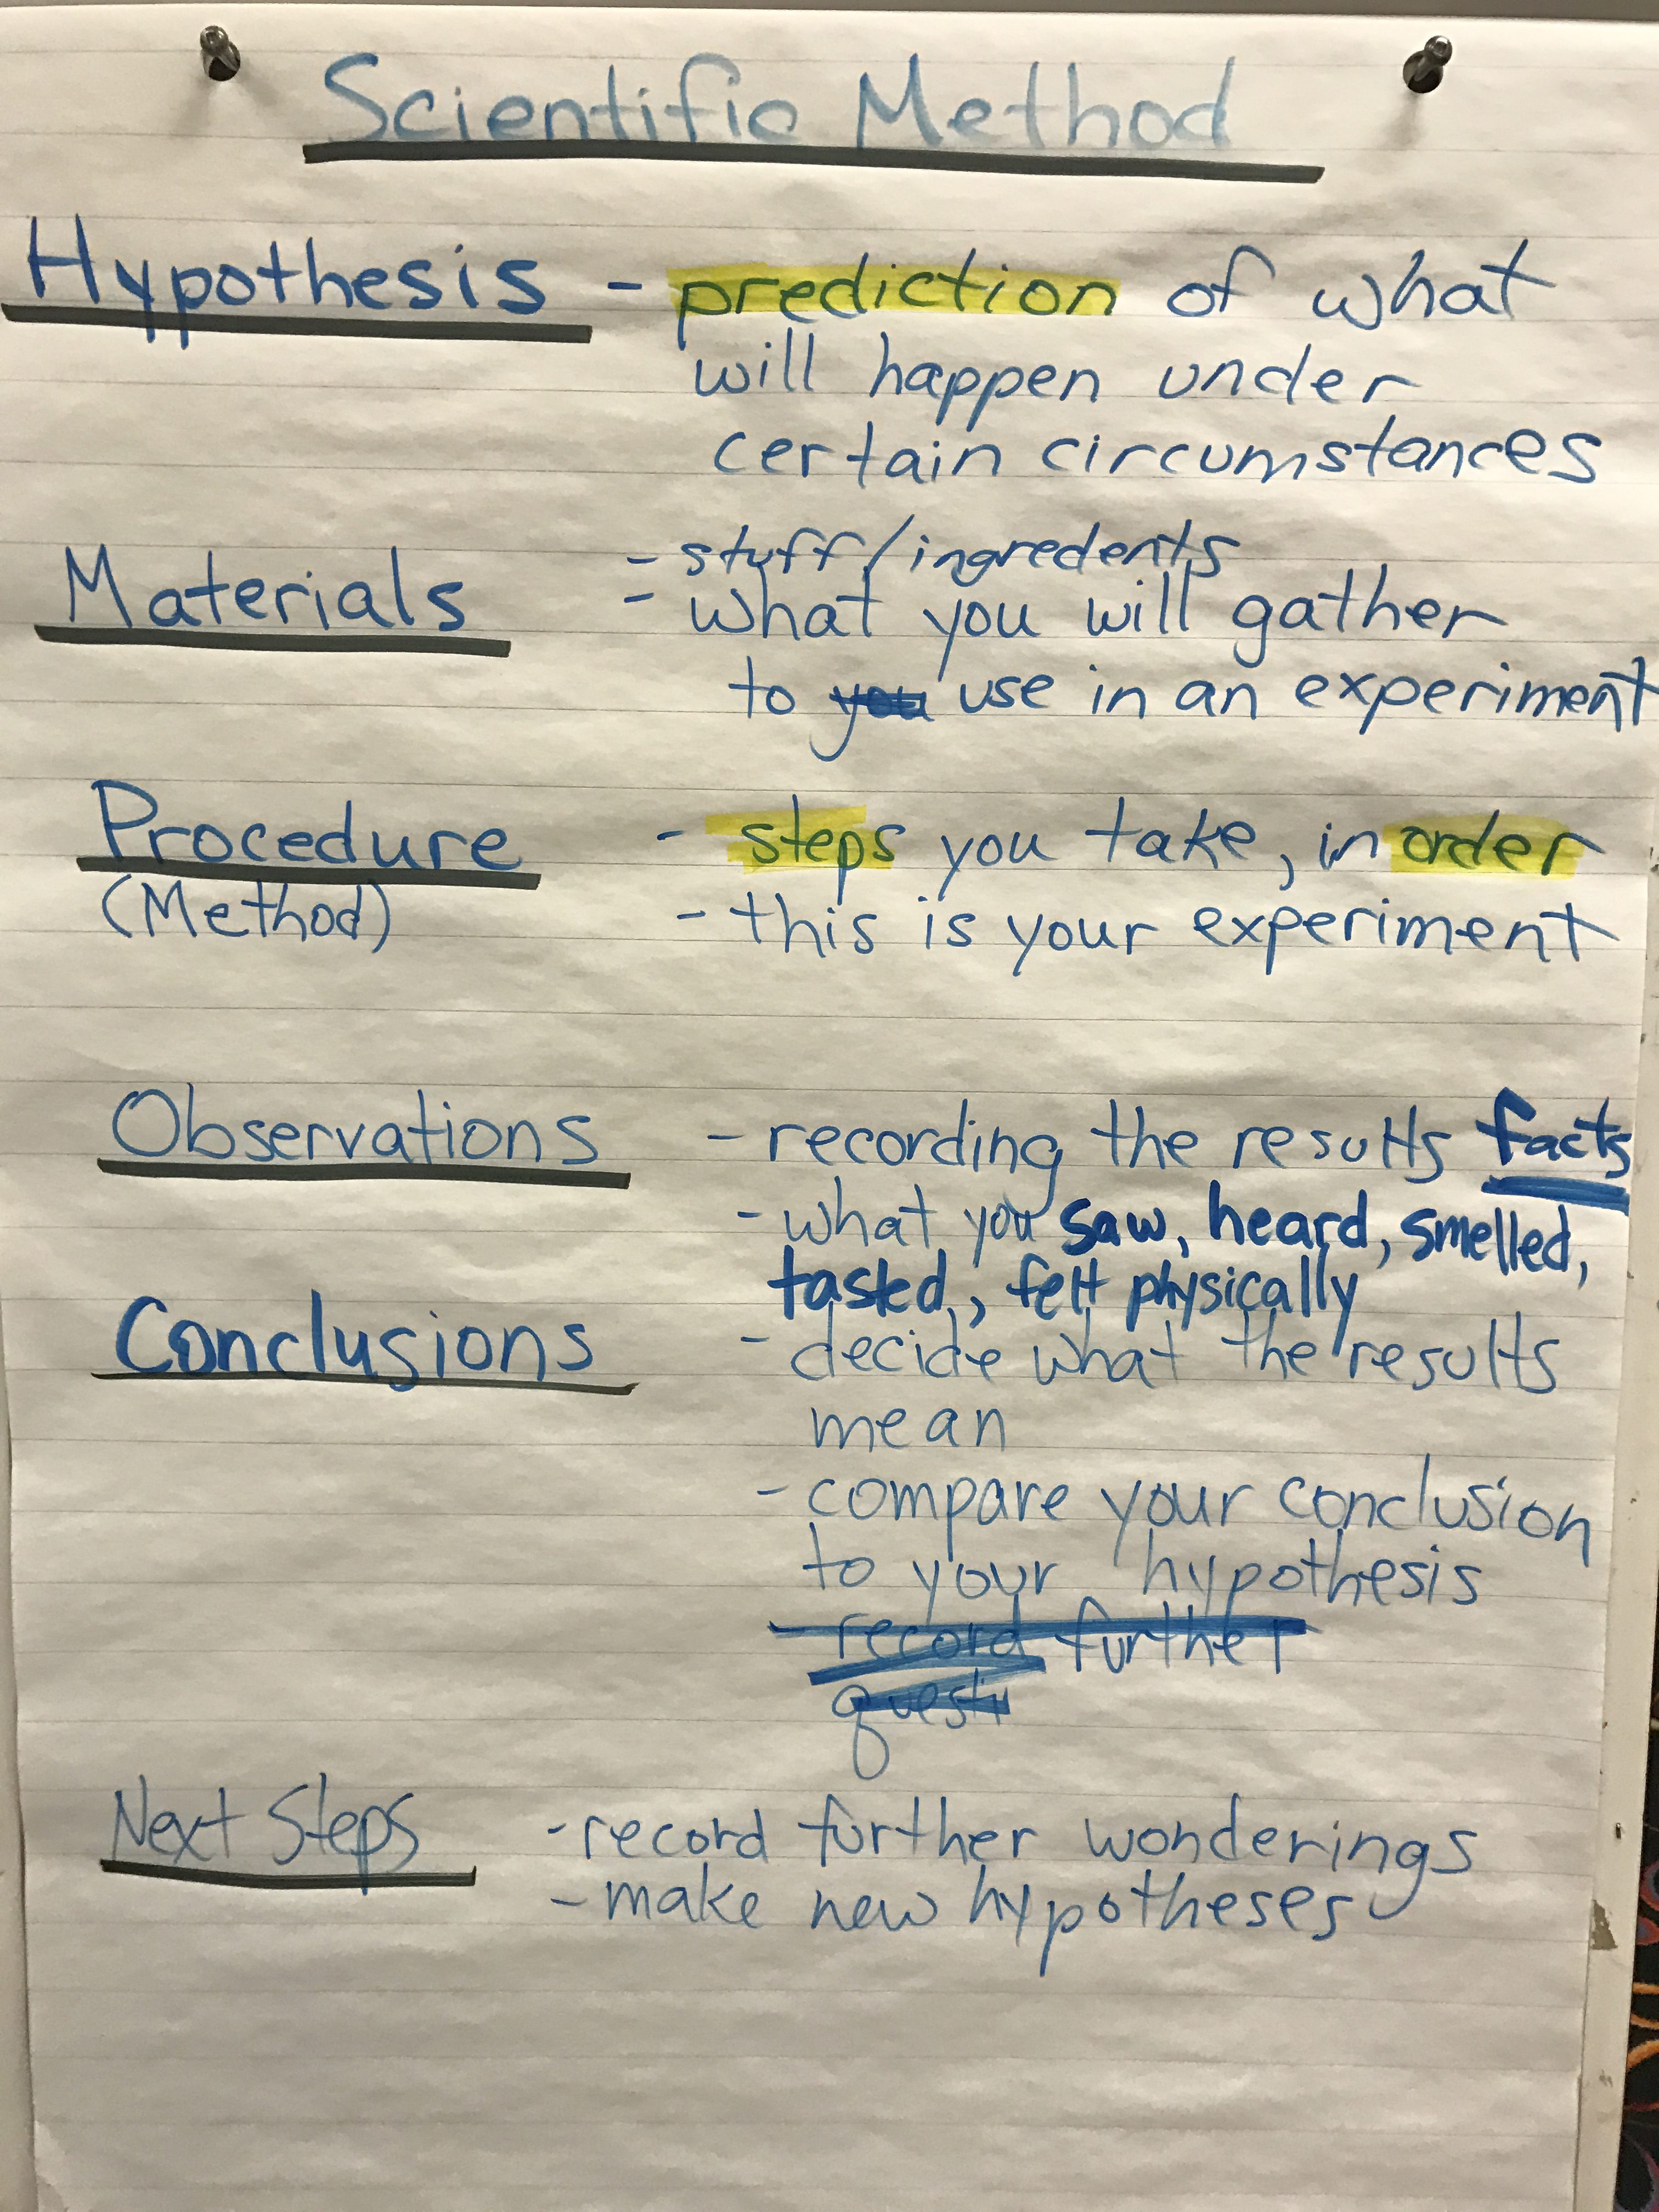 Scientific Method
Hypothesis - prediction of what
will happen under
certain circumstances
- stuff/ingredents
Materials - what you will gather
to you use in an experiment
Procedure - steps you take, in order
(Method) - this is your experiment
Observations - recording the results facts
- what you saw, heard, smelled,
tasted, felt physically
Conclusions - decide what the results
mean
- compare your conclusion
to your hypothesis
- record further
questi
Next Steps - record further wonderings
- make new hypotheses